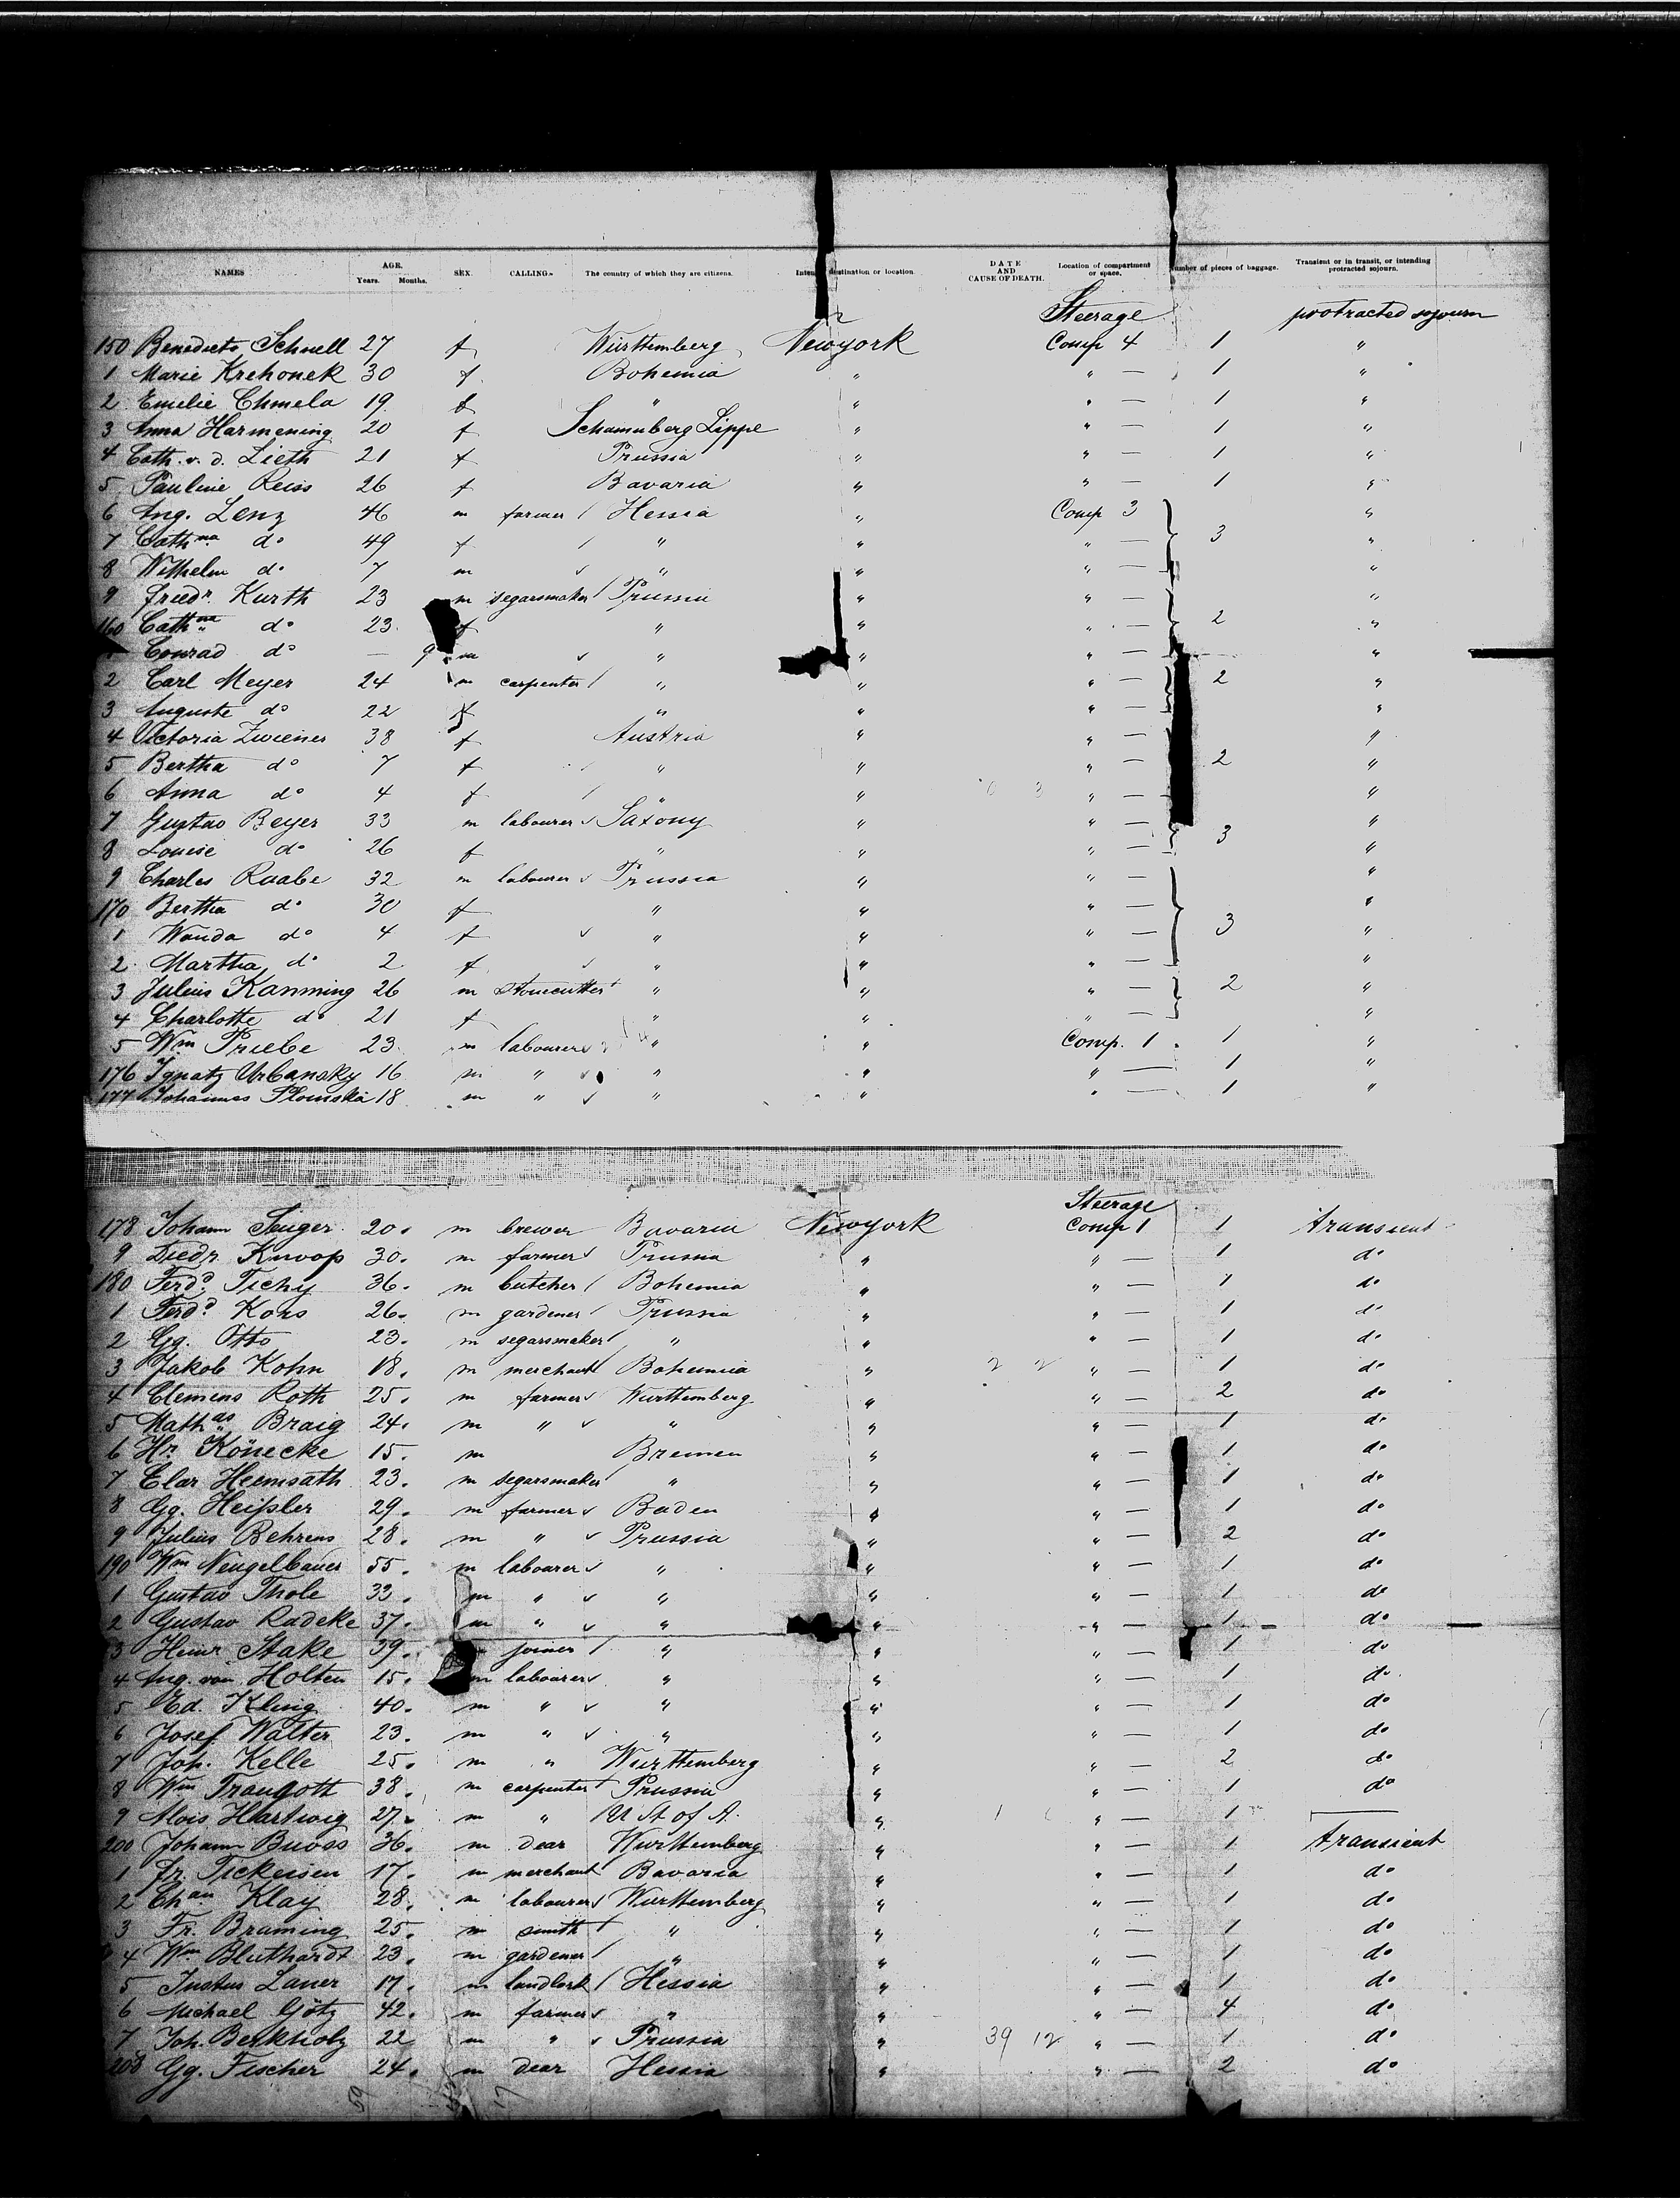 NAMES AGE. Years. Months. SEX. CALLING. The country of which they are citizens. Inten destination or location. DATE AND CAUSE OF DEATH. Location of compartment or space. Number of pieces of baggage. Transient or in transit, or intending protracted sojourn.
Steerage protracted sojourn
150 Benedicte Schnell 27 f Württemberg Newyork Comp 4 1 "
1 Marie Krehonek 30 f Bohemia " " — 1 "
2 Emelie Chmela 19 f " " " — 1 "
3 Anna Harmening 20 f Schaumberg Lippe " " — 1 "
4 Cath. v. d. Lieth 21 f Prussia " " — 1 "
5 Pauline Reiss 26 f Bavaria " " — 1 "
6 Aug. Lenz 46 m farmer Hessia " Comp 3 "
7 Cathna do 49 f " " " — 3 "
8 Wilhelm do 7 m " " " — "
9 Friedr. Kurth 23 m segarsmaker Prussia " " — "
160 Cathna do 23 f " " " — 2 "
Conrad do — 9 m " " " — "
2 Carl Meyer 24 m carpenter " " " — 2 "
3 Auguste do 22 f " " " — "
4 Victoria Zwiener 38 f Austria " " — "
5 Bertha do 7 f " " " — 2 "
6 Anna do 4 f " " " — "
7 Gustav Beyer 33 m labourer Saxony " " — 3 "
8 Louise do 26 f " " " — "
9 Charles Raabe 32 m labourer Prussia " " — "
170 Bertha do 30 f " " " — "
1 Wanda do 4 f " " " — 3 "
2 Martha do 2 f " " " — "
3 Julius Kamming 26 m stonecutter " " " — 2 "
4 Charlotte do 21 f " " " — "
5 Wm Priebe 23 m labourer " " Comp. 1 1 "
176 Ignatz Urbansky 16 m " " " " — 1 "
177 Johannes Slomska 18 m " " " " — 1 "
Steerage
178 Johann Seuger 20 m brewer Bavaria Newyork Comp 1 1 transient
9 Diedr. Knoop 30 m farmer Prussia " " — 1 do
180 Ferdd. Tichy 36 m butcher Bohemia " " — 1 do
1 Ferdd. Kons 26 m gardener Prussia " " — 1 do
2 Gg. Otto 23 m segarsmaker " " " — 1 do
3 Jakob Kohn 18 m merchant Bohemia " " — 1 do
4 Clemens Roth 25 m farmer Württemberg " " — 2 do
5 Mathas Braig 24 m " " " " — 1 do
6 Hr. Könecke 15 m Bremen " " — 1 do
7 Clar Heemsath 23 m segarsmaker " " " — 1 do
8 Gg. Heißler 29 m farmer Baden " " — 1 do
9 Julius Behrens 28 m " Prussia " " — 2 do
190 Wm Neugelbauer 55 m labourer " " " — 1 do
1 Gustav Thole 33 m " " " " — 1 do
2 Gustav Radeke 37 m " " " " — 1 do
3 Heinr. Stake 39 joiner " " " — 1 do
4 Aug. von Holten 15 m labourer " " " — 1 do
5 Ed. Kling 40 m " " " " — 1 do
6 Josef Walter 23 m " " " " — 1 do
7 Joh. Kelle 25 m " Württemberg " " — 2 do
8 Wm Traugott 38 m carpenter Prussia " " — 1 do
9 Alois Hartwig 27 m " U St of A. " " — 1 —
200 Johann Buoss 36 m dear Württemberg " " — 1 transient
1 Fr. Tickeisen 17 m merchant Bavaria " " — 1 do
2 Chan Klay 28 m labourer Württemberg " " — 1 do
3 Fr. Braming 25 m smith " " " — 1 do
4 Wm Bluthardt 23 m gardener " " " — 1 do
5 Justus Lauer 17 m landlork Hessia " " — 1 do
6 Michael Götz 42 m farmer " " " — 4 do
7 Joh. Berkholz 22 m " Prussia " 39 12 " — 1 do
208 Gg. Fischer 24 m dear Hessia " " — 2 do